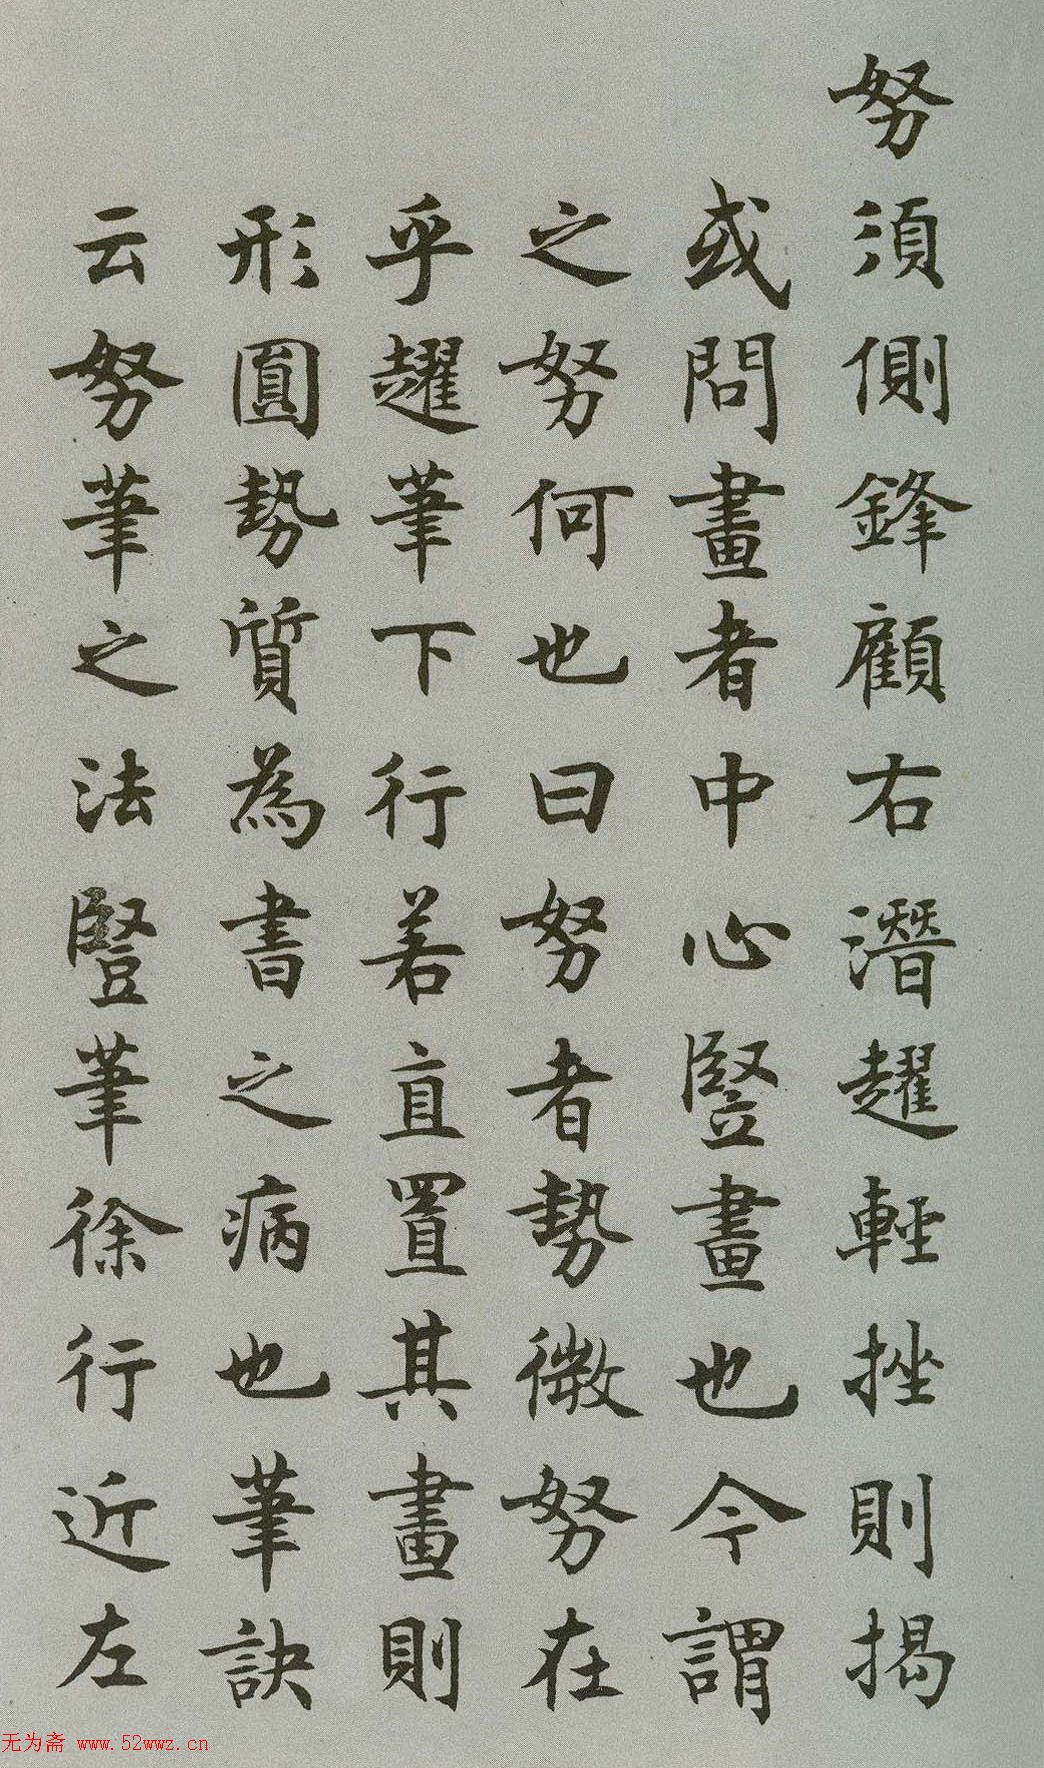 努須側鋒顧右潛趯輕挫則揭
或問畫者中心竪畫也今謂
之努何也曰努者勢微努在
乎趯筆下行若直置其畫則
形圓勢質為書之病也筆訣
云努筆之法豎筆徐行近左
无为斋 www.52wwz.cn